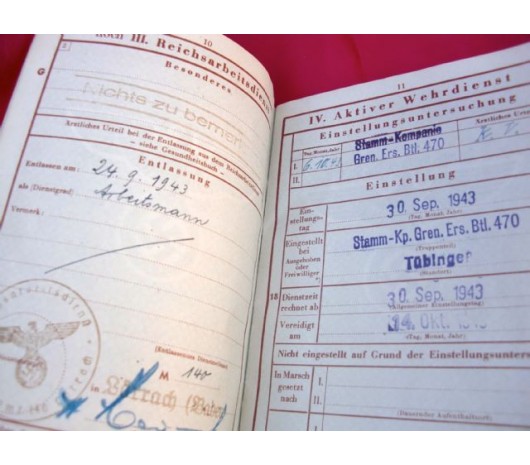 10
noch III. Reichsarbeitsdienst
Besonderes
Nichts zu bemerken
Ärztliches Urteil bei der Entlassung aus dem Reichsarbeitsdienst
– siehe Gesundheitsbuch –
Entlassung
Entlassen am: 24. 9. 1943
als (Dienstgrad) Arbeitsmann
Vermerk:
(Entlassende Dienststelle)
M 140
in Lörrach (Baden)
11
IV. Aktiver Wehrdienst
Einstellungsuntersuchung
Ärztliches Urteil
Stamm-Kompanie
Gren. Ers. Btl. 470
I.
(Tag, Monat, Jahr)
II.
Einstellung
Ein-
stellungs-
tag
30 Sep. 1943
(Tag, Monat, Jahr)
Eingestellt
bei
Ausgehoben
oder
Freiwilliger
Stamm-Kp. Gren. Ers. Btl. 470
(Truppenteil)
Tübingen
(Standort)
18
Dienstzeit
rechnet ab
30 Sep. 1943
Vereidigt
am
Okt.
(Tag, Monat, Jahr)
Nicht eingestellt auf Grund der Einstellungsunters
In Marsch
gesetzt
nach
I.
(Dauernder Aufenthaltsort)
II.